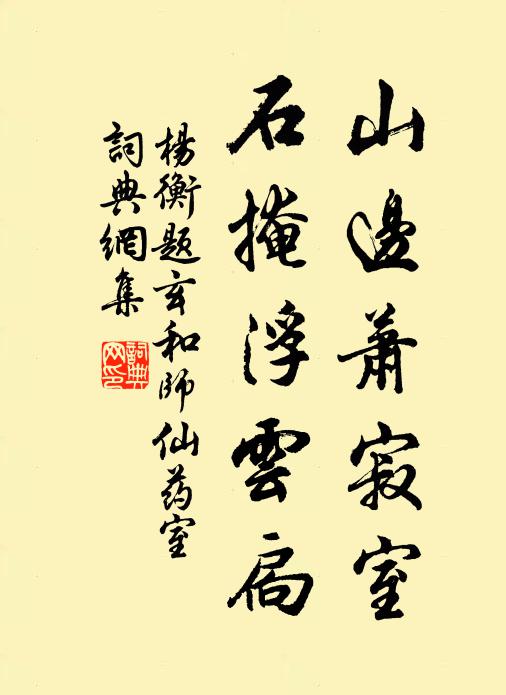 山邊蕭寂室
石掩浮雲扃
楊衡题玄和師仙药室
詞典網集
詞典网印